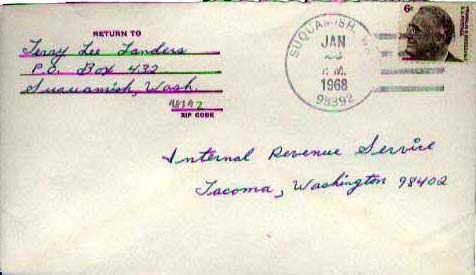 RETURN TO
Terry Lee Landers
P.O. Box 432
Suquamish, Wash.
98392
ZIP CODE
SUQUAMISH, WA
JAN
1968
98392
6¢
Internal Revenue Service
Tacoma, Washington 98402